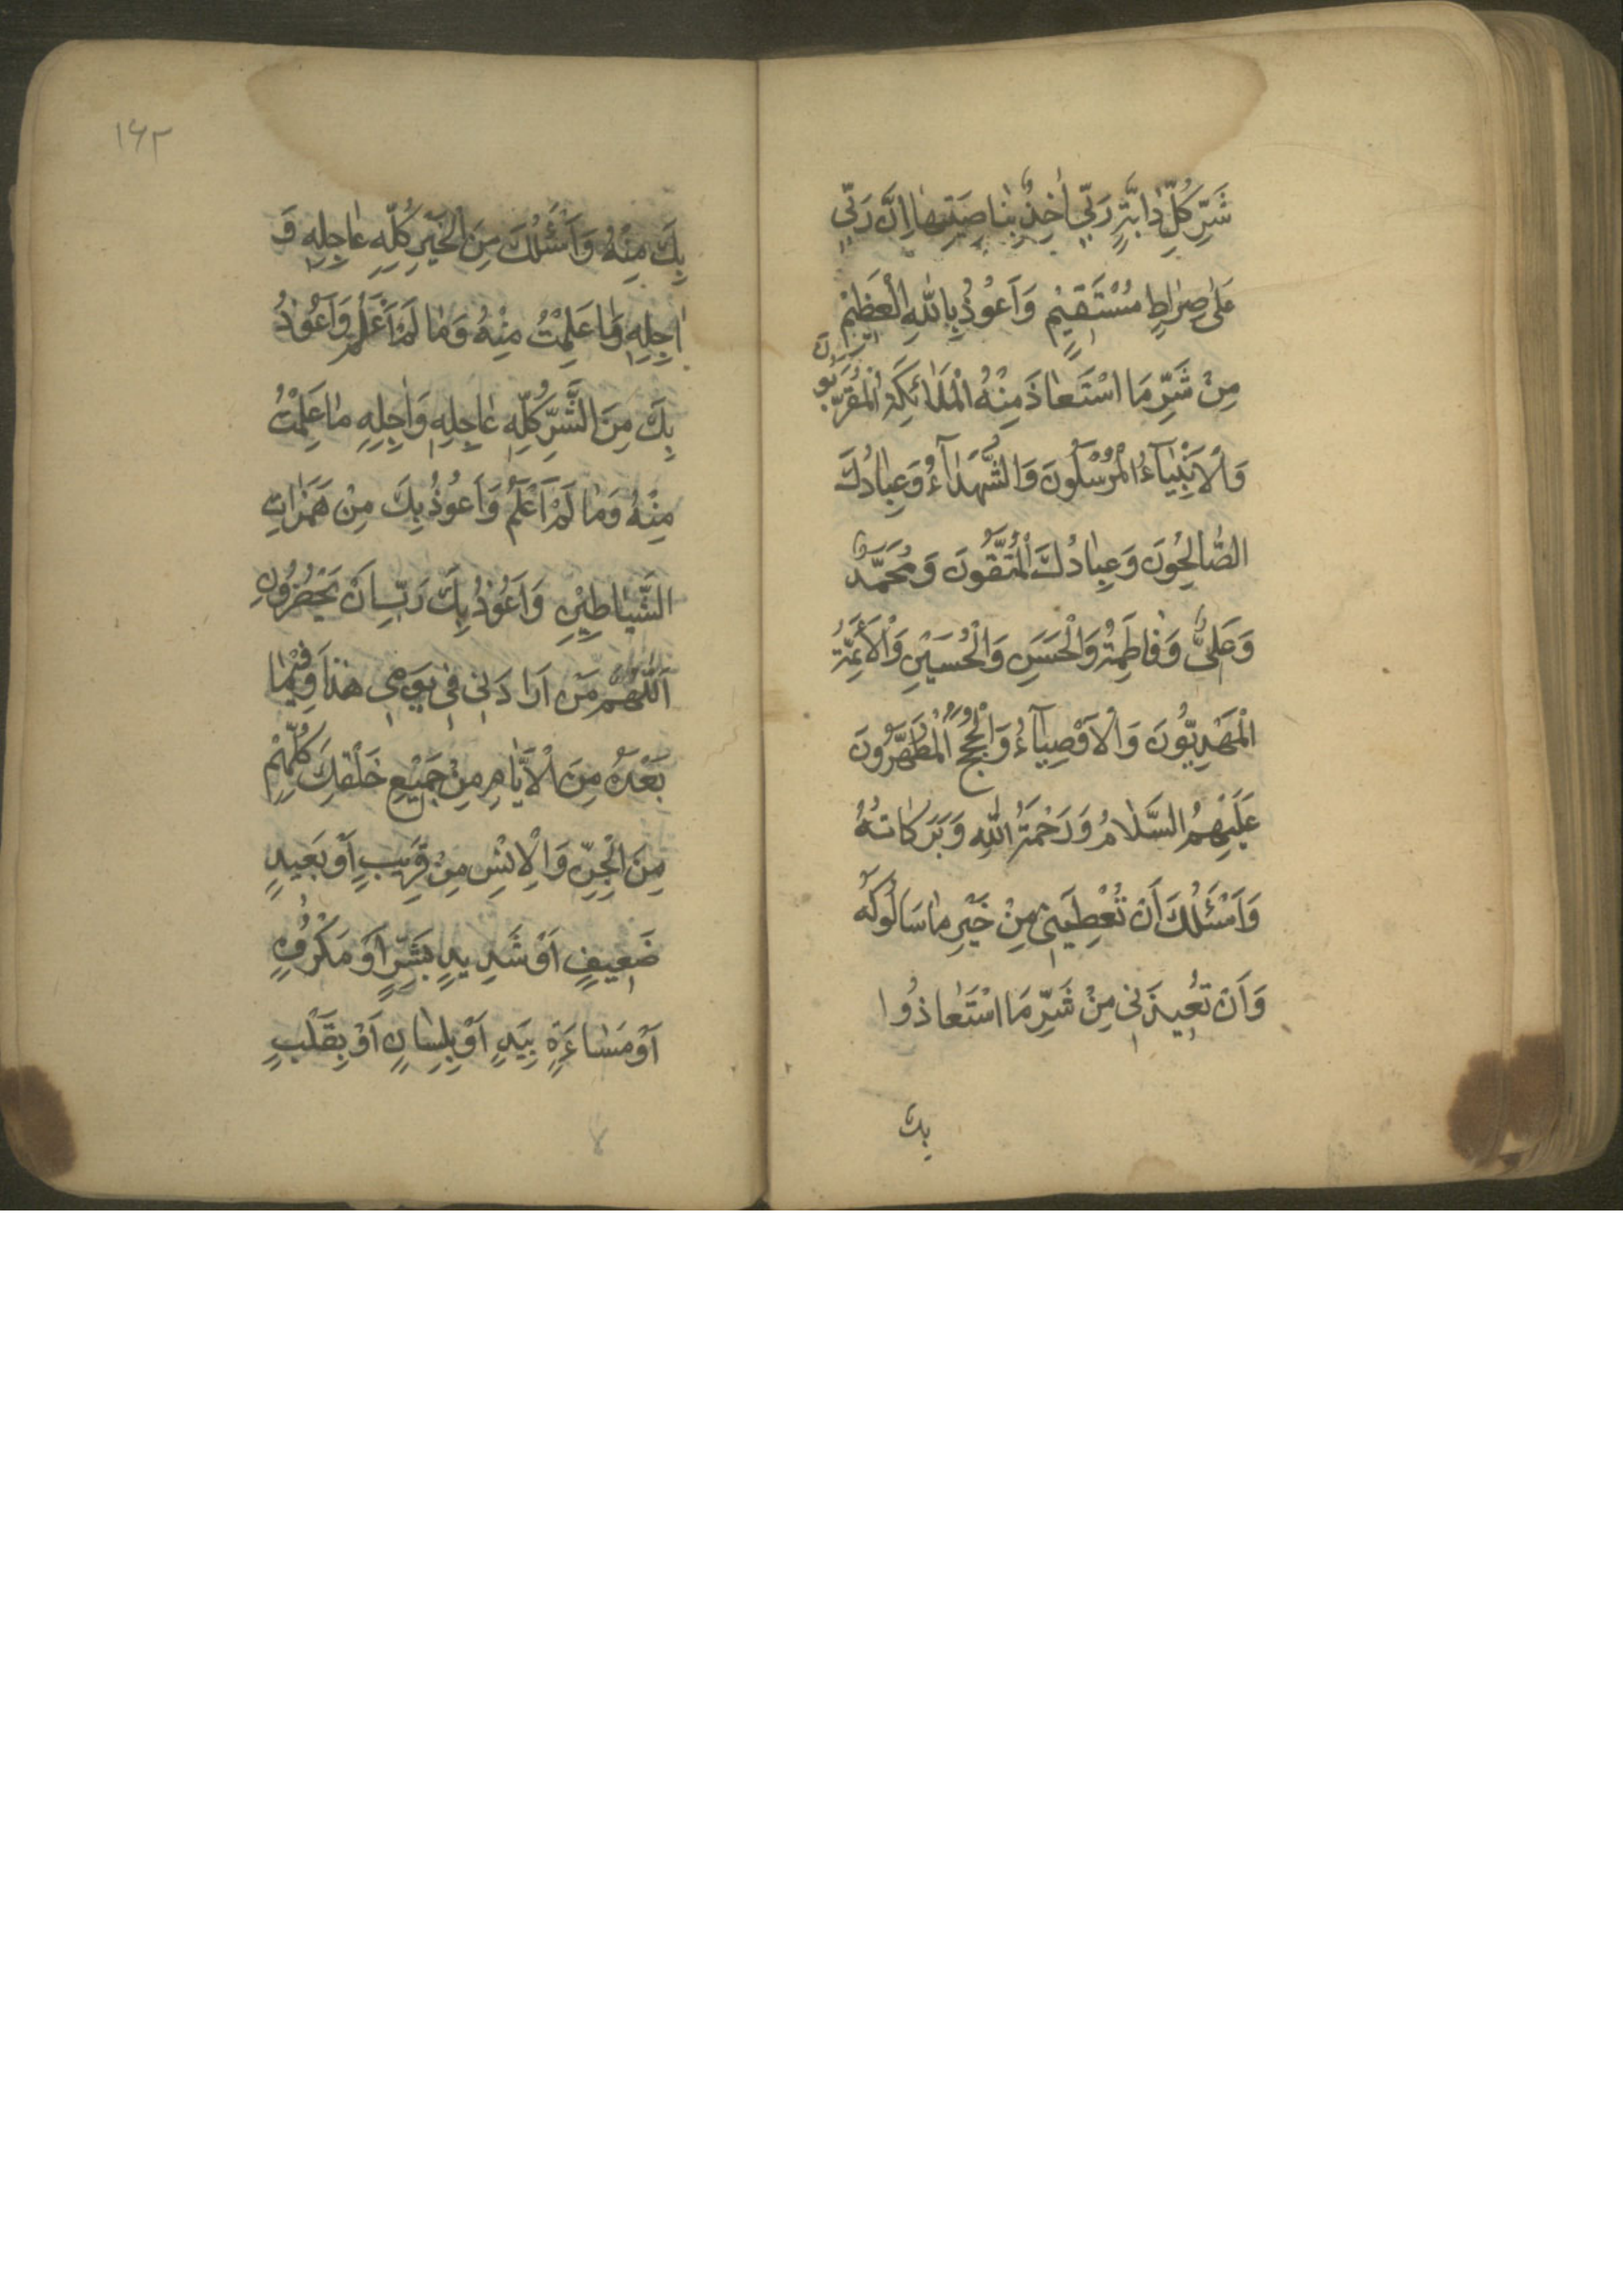 شَرِّ كُلِّ دٰابَّةٍ رَبّي اٰخِذٌ بِنٰاصِيَتِهٰا اِنَّ رَبّي
عَلىٰ صِرٰاطٍ مُسْتَقيٖمٍ وَاَعُوذُ بِاللّٰهِ الْعَظيٖمِ
مِنْ شَرِّ مَا اسْتَعٰاذَ مِنْهُ الْمَلاٰئِكَةُ الْمُقَرَّبُونَ
وَالْاَنْبِيٰآءُ الْمُرْسَلُونَ وَالشُّهَدٰآءُ وَعِبٰادُكَ
الصّٰالِحُونَ وَعِبٰادُكَ الْمُتَّقُونَ وَمُحَمَّدٌ
وَعَلِيٌّ وَفٰاطِمَةُ وَالْحَسَنِ وَالْحُسَيْنِ وَالْاَئِمَّةُ
الْمَهْدِيُّونَ وَالْاَوْصِيٰآءُ وَالْحُجَجُ الْمُطَهَّرُونَ
عَلَيْهِمُ السَّلاٰمُ وَرَحْمَةُ اللّٰهِ وَبَرَكٰاتُهُ
وَاَسْئَلُكَ اَنْ تُعْطِيَنيٖ مِنْ خَيْرِ مٰا سَاَلُوكَهُ
وَاَنْ تُعيٖذَنيٖ مِنْ شَرِّ مَا اسْتَعٰاذُوا
بِكَ
١٤٢
بِكَ مِنْهُ وَاَسْئَلُكَ مِنَ الْخَيْرِ كُلِّهِ عٰاجِلِهِ وَ
اٰجِلِهِ وَمٰا عَلِمْتُ مِنْهُ وَمٰا لَمْ اَعْلَمْ وَاَعُوذُ
بِكَ مِنَ الشَّرِّ كُلِّهِ عٰاجِلِهِ وَاٰجِلِهِ مٰا عَلِمْتُ
مِنْهُ وَمٰا لَمْ اَعْلَمْ وَاَعُوذُ بِكَ مِنْ هَمَزٰاتِ
الشَّيٰاطيٖنِ وَاَعُوذُ بِكَ رَبِّ اَنْ يَحْضُرُونِ
اَللّٰهُمَّ مَنْ اَرٰادَنيٖ فيٖ يَوْميٖ هٰذٰا وَفيٖمٰا
بَعْدَهُ مِنَ الْاَيّٰامِ مِنْ جَميٖعِ خَلْقِكَ كُلِّهِمْ
مِنَ الْجِنِّ وَالْاِنْسِ مِنْ قَريٖبٍ اَوْ بَعيٖدٍ
ضَعيٖفٍ اَوْ شَديٖدٍ بِشَرٍّ اَوْ مَكْرُوهٍ
اَوْ مَسٰاءَةٍ بِيَدٍ اَوْ بِلِسٰانٍ اَوْ بِقَلْبٍ